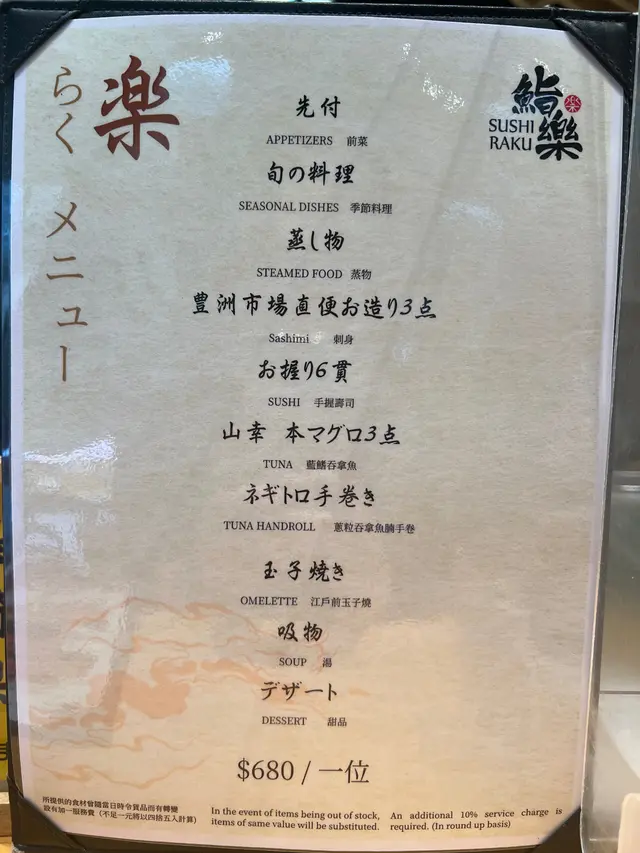 楽
らく メニュー
鮨樂
SUSHI
RAKU
先付
APPETIZERS 前菜
旬の料理
SEASONAL DISHES 季節料理
蒸し物
STEAMED FOOD 蒸物
豊洲市場直便お造り3点
Sashimi 刺身
お握り6貫
SUSHI 手握壽司
山幸 本マグロ3点
TUNA 藍鰭吞拿魚
ネギトロ手巻き
TUNA HANDROLL 蔥粒吞拿魚腩手卷
玉子焼き
OMELETTE 江戶前玉子燒
吸物
SOUP 湯
デザート
DESSERT 甜品
$680 / 一位
所提供的食材會隨當日時令貨品而有轉變
設有加一服務費（不足一元將以四捨五入計算）
In the event of items being out of stock,
items of same value will be substituted.
An additional 10% service charge is
required. (In round up basis)